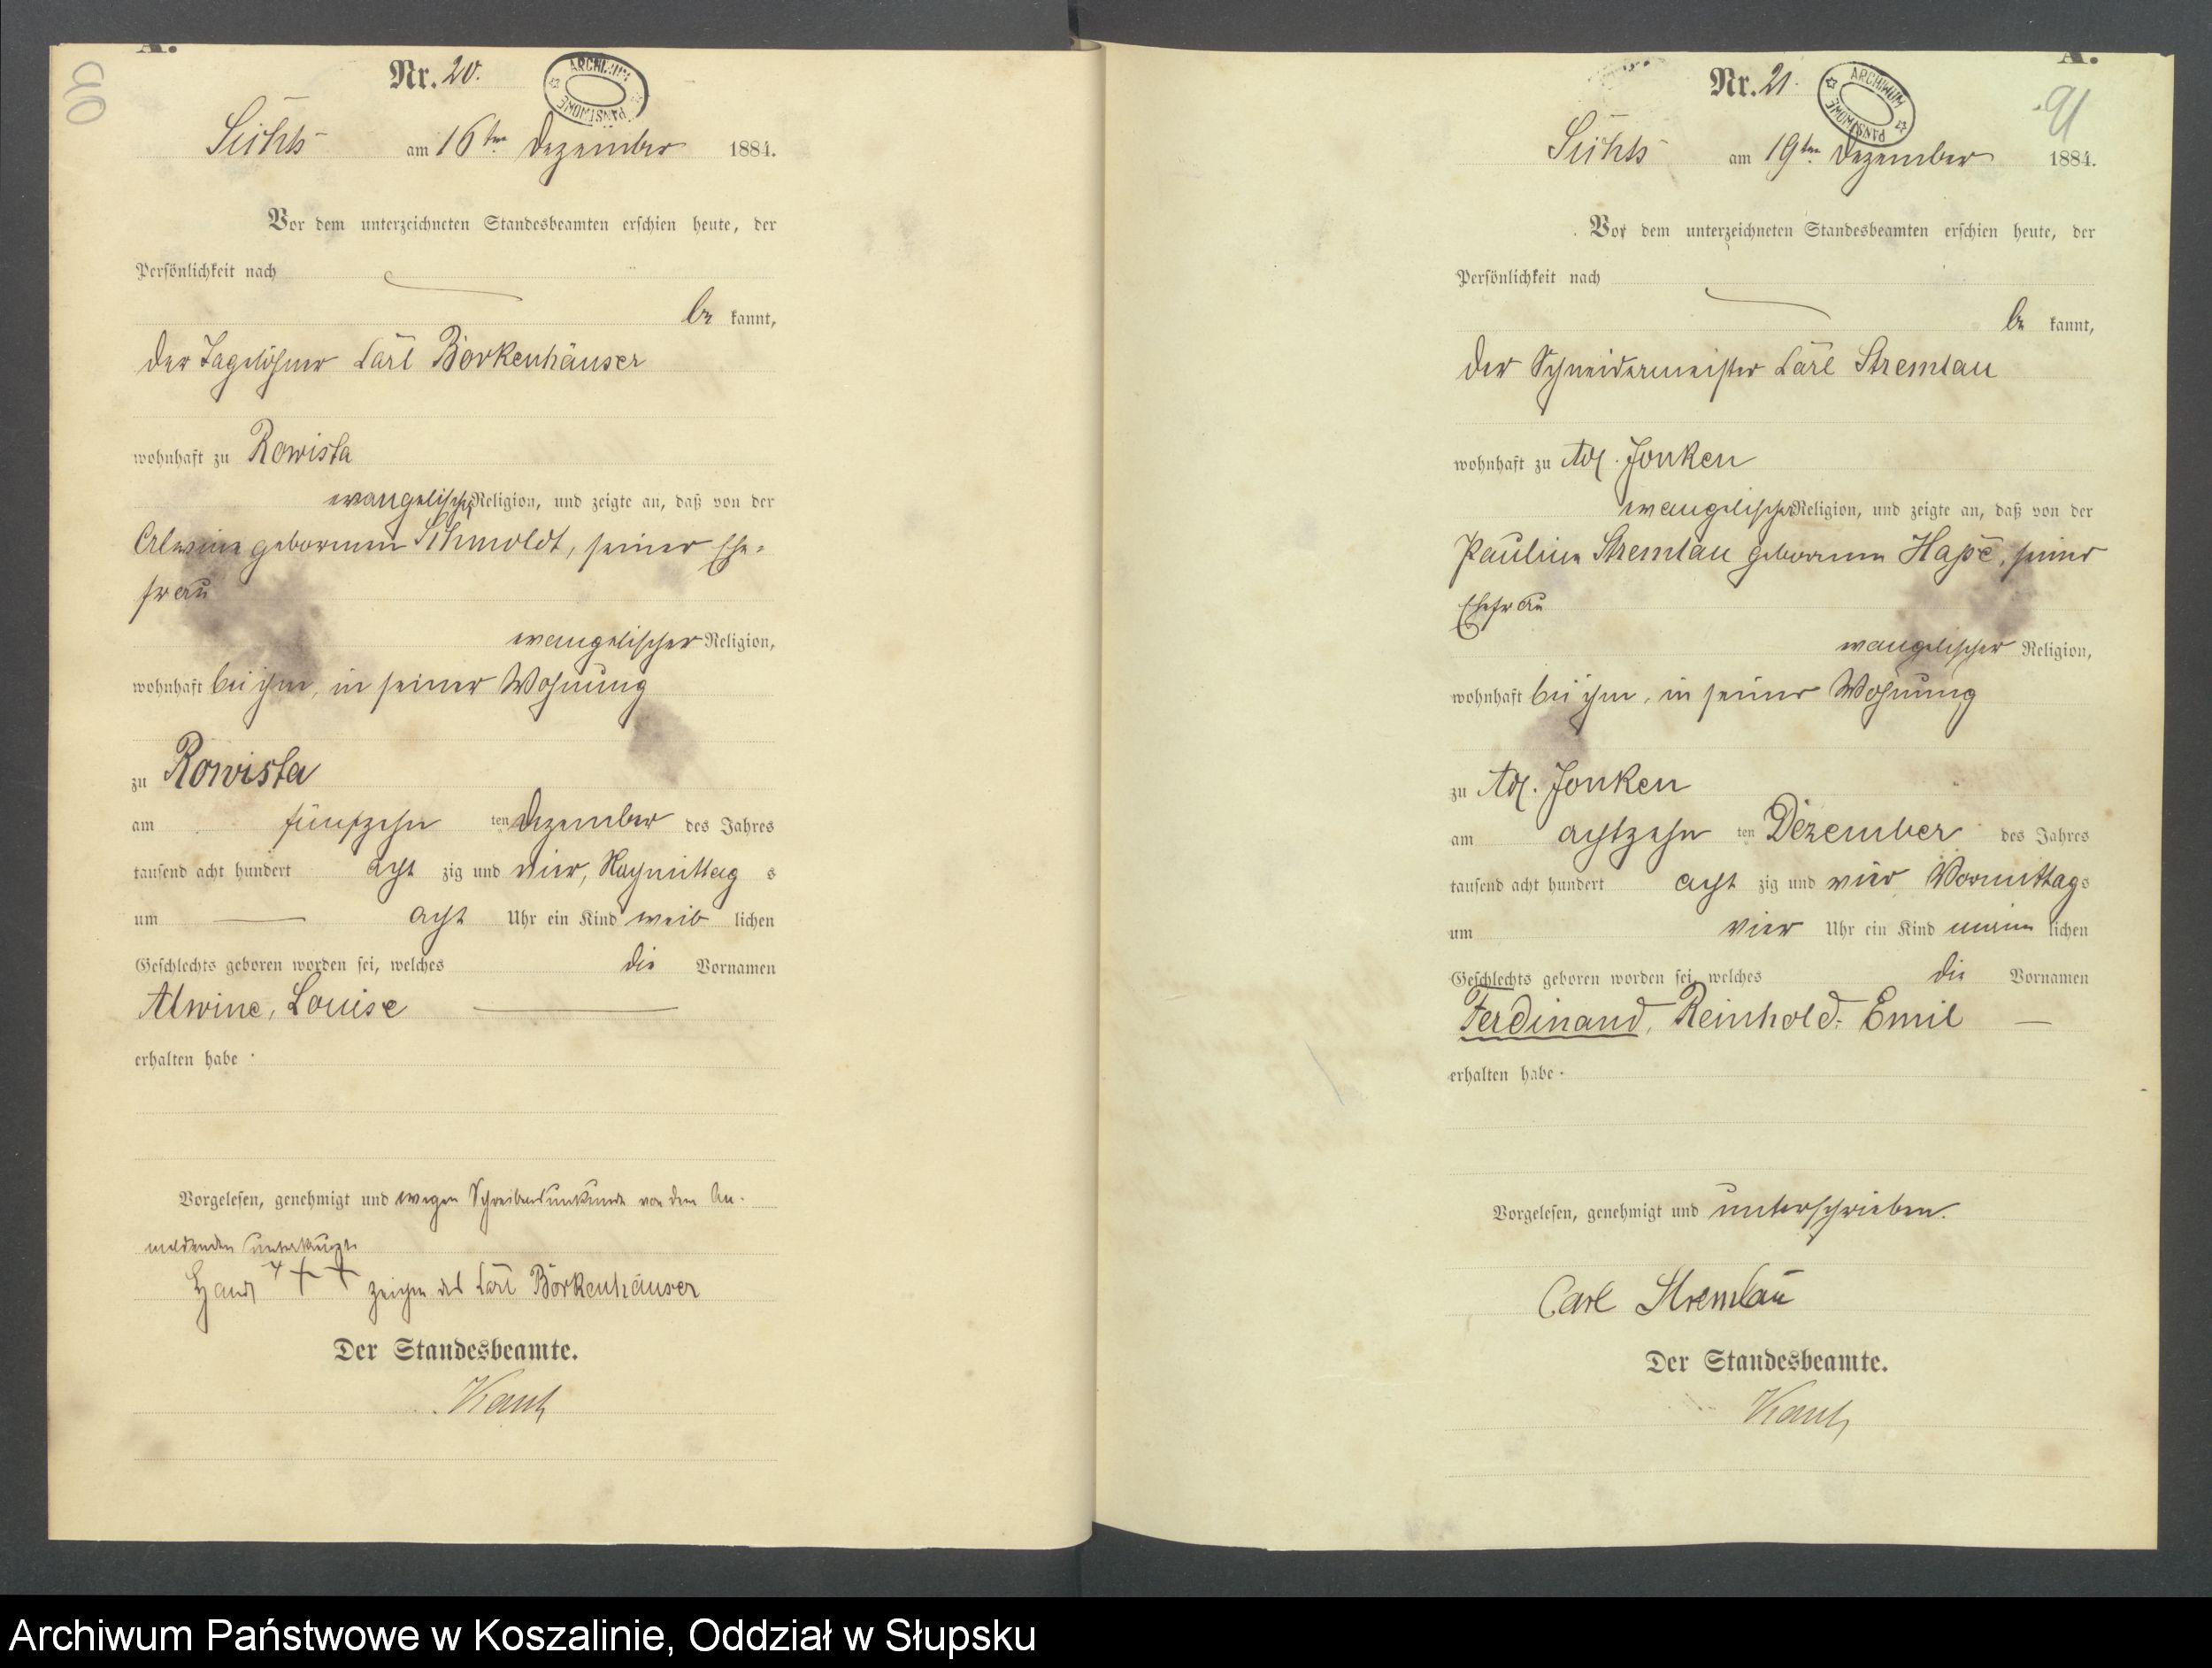 A.
Nr. 20.
ARCHIWUM PAŃSTWOWE
am 16ten Dezember 1884.
Vor dem unterzeichneten Standesbeamten erschien heute, der
Persönlichkeit nach
be kannt,
der Tagelöhner Carl Borkenhäuser
wohnhaft zu Rowista
evangelischer Religion, und zeigte an, daß von der
Alwine geborenen Schmoldt, seiner Ehe-
frau
evangelischer Religion,
wohnhaft bei ihm, in seiner Wohnung
zu Rowista
am fünfzehn ten Dezember des Jahres
tausend acht hundert acht zig und vier, Nachmittag s
um acht Uhr ein Kind weib lichen
Geschlechts geboren worden sei, welches die Vornamen
Alwine, Louise
erhalten habe.
Vorgelesen, genehmigt und wegen Schreibensunkunde von dem An-
meldenden unterkreuzt.
Hand +++ zeichen des Carl Borkenhäuser
Der Standesbeamte.
A.
Nr. 21.
ARCHIWUM PAŃSTWOWE
91
am 19ten Dezember 1884.
Vor dem unterzeichneten Standesbeamten erschien heute, der
Persönlichkeit nach
be kannt,
der Schneidermeister Carl Stremlau
wohnhaft zu Adl. Jonken
evangelischer Religion, und zeigte an, daß von der
Pauline Stremlau geborenen Hase, seiner
Ehefrau
evangelischer Religion,
wohnhaft bei ihm, in seiner Wohnung
zu Adl. Jonken
am achtzehn ten Dezember des Jahres
tausend acht hundert acht zig und vier Vormittags
um vier Uhr ein Kind männ lichen
Geschlechts geboren worden sei, welches die Vornamen
Ferdinand, Reinhold, Emil
erhalten habe.
Vorgelesen, genehmigt und unterschrieben.
Carl Stremlau
Der Standesbeamte.
Archiwum Państwowe w Koszalinie, Oddział w Słupsku